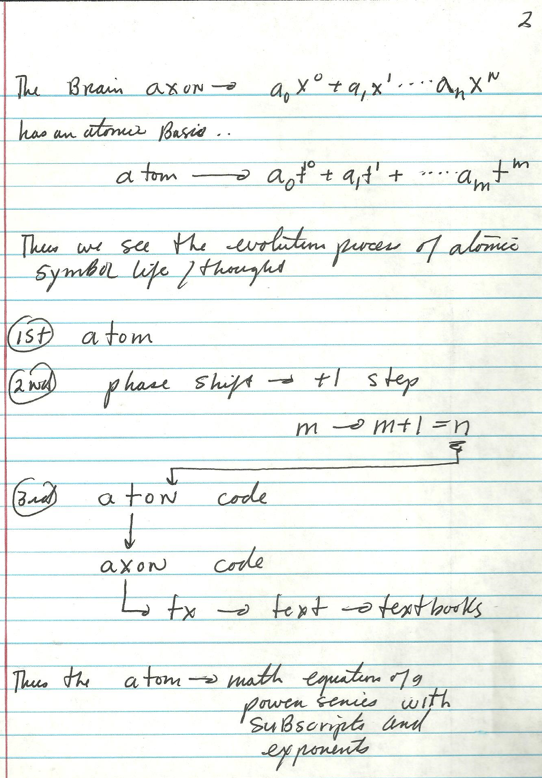 2
The Brain axon → a₀x⁰ + a₁x¹ ····· aₙxᴺ
has an atomic Basis..
atom → a₀t⁰ + a₁t¹ + ····· aₘtᵐ
Thus we see the evolution process of atomic
symbol life / thought
1st atom
2nd phase shift → +1 step
m → m+1 = n
3rd atoN code
axoN code
tx → text → textbooks
Thus the atom → math equation of a
power series with
SuBscripts and
exponents